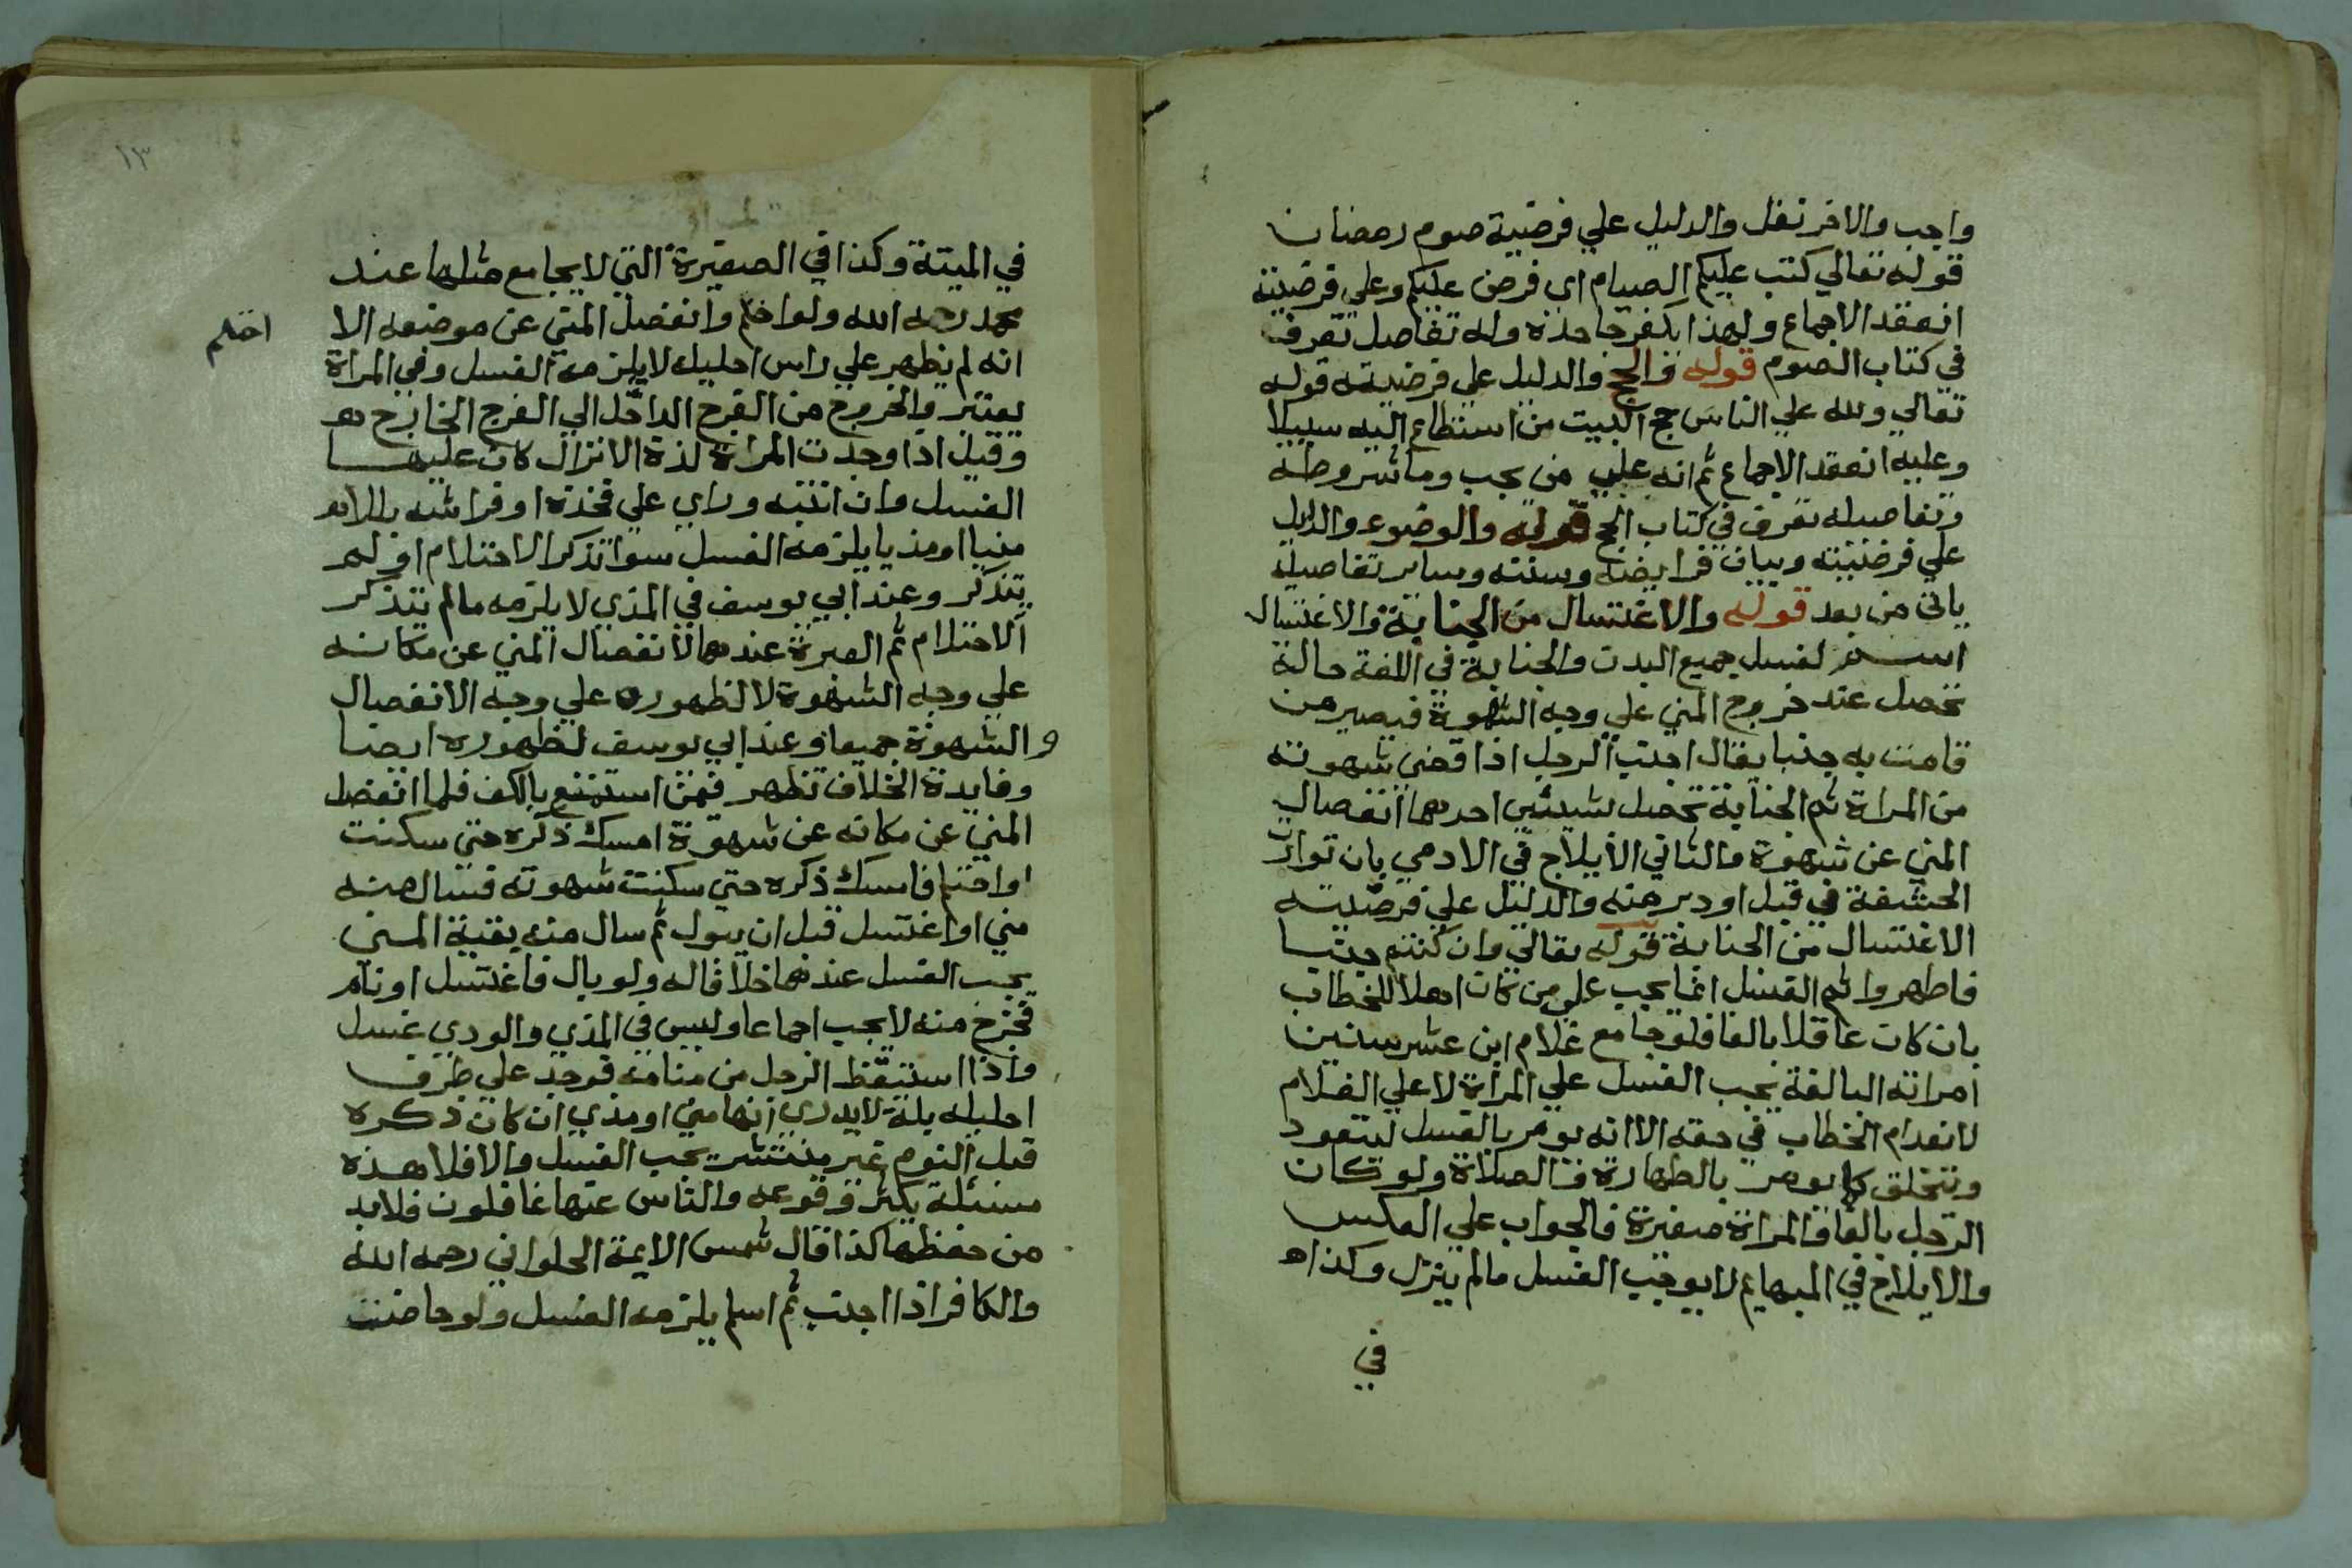 واجب والاخر نفل والدليل علي فرضية صوم رمضان
قوله تعالي كتب عليكم الصيام اي فرض عليكم وعلي فرضيته
انعقد الاجماع ولهذا يكفر جاحده وله تفاصل تعرف
في كتاب الصوم قوله والحج والدليل علي فرضيته قوله
تعالي ولله علي الناس حج البيت من استطاع اليه سبيلا
وعليه انعقد الاجماع ثم انه علي من يجب وما شروطه
وتفاصيله تعرف في كتاب الحج قوله والوضوء والدليل
علي فرضيته وبيان فرايضه وسننه وساير تفاصيله
ياتي من بعد قوله والاغتسال من الجنابة والاغتسال
اسم لغسل جميع البدن والجنابة في اللغة حالة
تحصل عند خروج المني علي وجه الشهوة فيصير من
قامت به جنبا يقال اجنب الرجل اذا قضي شهوته
من المراة ثم الجنابة تحصل بشيئين احدهما انفصال
المني عن شهوة والثاني الايلاج في الادمي بان توارت
الحشفة في قبل او دبر منه والدليل علي فرضيته
الاغتسال من الجنابة قوله تعالي وان كنتم جنبا
فاطهروا ثم الغسل انما يجب علي من كان اهلا للخطاب
بان كان عاقلا بالغا فلو جامع غلام ابن عشر سنين
امراته البالغة يجب الغسل علي المراة لا علي الغلام
لانعدام الخطاب في حقه الا انه يومر بالغسل ليتعود
ويتخلق كما يومر بالطهارة والصلاة ولو كان
الرجل بالغا والمراة صغيرة فالجواب علي العكس
والايلاج في البهايم لا يوجب الغسل مالم ينزل وكذا
في
١٣
في الميتة وكذا في الصغيرة التي لا يجامع مثلها عند
محمد رحمه الله ولو احتلم وانفصل المني عن موضعه الا
احتلم
انه لم يظهر علي راس احليله لا يلزمه الغسل وفي المراة
يعتبر والخروج من الفرج الداخل الي الفرج الخارج
وقيل اذا وجدت المراة لذة الانزال كان عليها
الغسل وان انتبه وراي علي فخذه او فراشه بللا
منيا او مذيا يلزمه الغسل سوا تذكر الاحتلام او لم
يتذكر وعند ابي يوسف في المذي لا يلزمه مالم يتذكر
الاحتلام ثم العبرة عندهما لانفصال المني عن مكانه
علي وجه الشهوة لا لظهوره علي وجه الانفصال
والشهوة جميعا وعند ابي يوسف لظهوره ايضا
وفايدة الخلاف تظهر فيمن استمتع بالكف فلما انفصل
المني عن مكانه عن شهوة امسك ذكره حتي سكنت
او احتلم فامسك ذكره حتي سكنت شهوته فسال منه
مني او اغتسل قبل ان يبول ثم سال منه بقية المني
يجب الغسل عندهما خلافا له ولو بال فاغتسل او نام
فخرج منه لا يجب اجماعا وليس في المذي والودي غسل
واذا استيقظ الرجل من منامه فوجد علي طرف
احليله بلة لا يدري انها مني او مذي ان كان ذكره
قبل النوم غير منتشر يجب الغسل والا فلا هذه
مسئلة يكثر وقوعه والناس عنها غافلون فلا بد
من حفظها كذا قال شمس الايمة الحلواني رحمه الله
والكافر اذا اجنب ثم اسلم يلزمه الغسل ولو حاضت